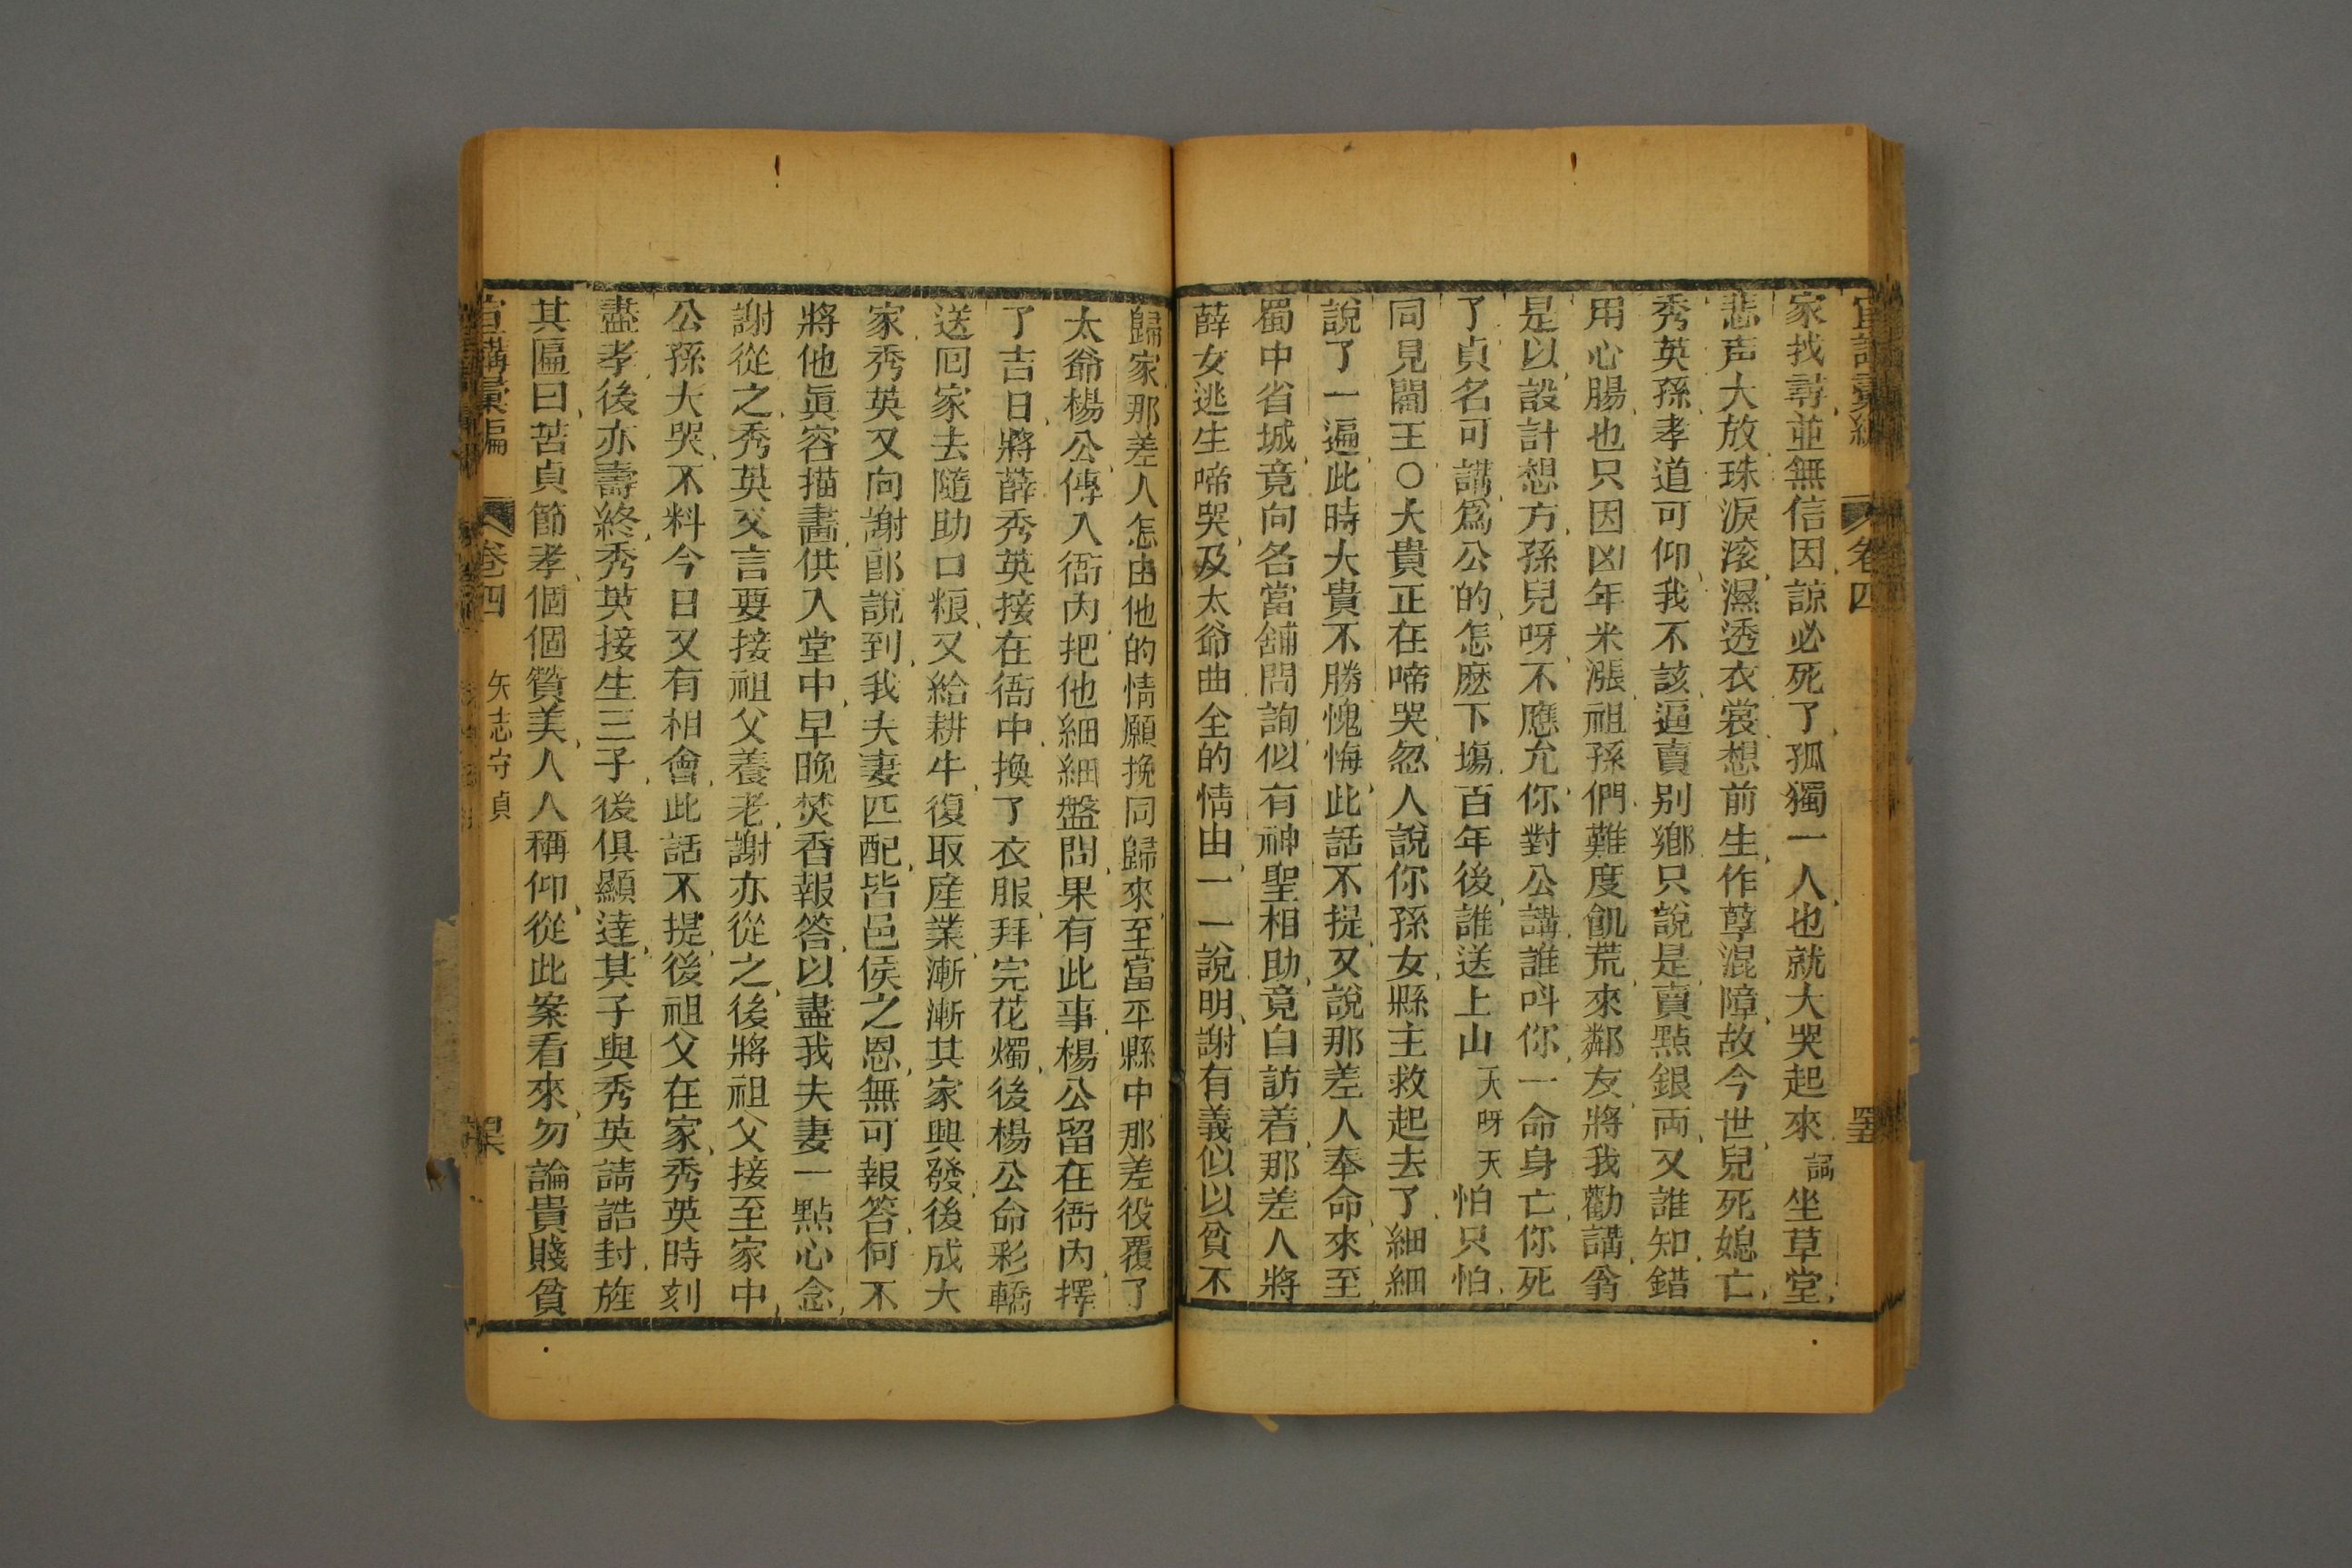 宣講彙編 卷四 罡
家找尋並無信因諒必死了孤獨一人也就大哭起來 謌 坐草堂
悲声大放珠淚滚濕透衣裳想前生作孽混障故今世兒死媳亡
秀英孫孝道可仰我不該逼賣别鄉只說是賣點銀両又誰知錯
用心腸也只因凶年米漲祖孫們難度飢荒來鄰友將我勸講翁
是以設計想方孫兒呀不應允你對公講誰呌你一命身亡你死
了貞名可講爲公的怎麽下塲百年後誰送上山 天呀天 怕只怕
同見閻王○大貴正在啼哭忽人說你孫女縣主救起去了細細
說了一遍此時大貴不勝愧悔此話不提又說那差人奉命來至
蜀中省城竟向各當舖問詢似有神聖相助竟白訪着那差人將
薛女逃生啼哭及太爺曲全的情由一一說明謝有義似以貧不
歸家那差人怎由他的情願挽同歸來至富平縣中那差役覆了
太爺楊公傳入衙内把他細細盤問果有此事楊公留在衙内擇
了吉日將薛秀英接在衙中換了衣服拜完花燭後楊公命彩轎
送囘家去隨助口粮又給耕牛復取産業漸漸其家興發後成大
家秀英又向謝郎說到我夫妻匹配皆邑侯之恩無可報答何不
將他眞容描畵供入堂中早晚焚香報答以盡我夫妻一點心念
謝從之秀英又言要接祖父養老謝亦從之後將祖父接至家中
公孫大哭不料今日又有相會此話不提後祖父在家秀英時刻
盡孝後亦壽終秀英接生三子後俱顯達其子與秀英請誥封旌
其匾曰苦貞節孝個個贊美人人稱仰從此案看來勿論貴賤貧
宣講彙編 卷四 矢志守貞